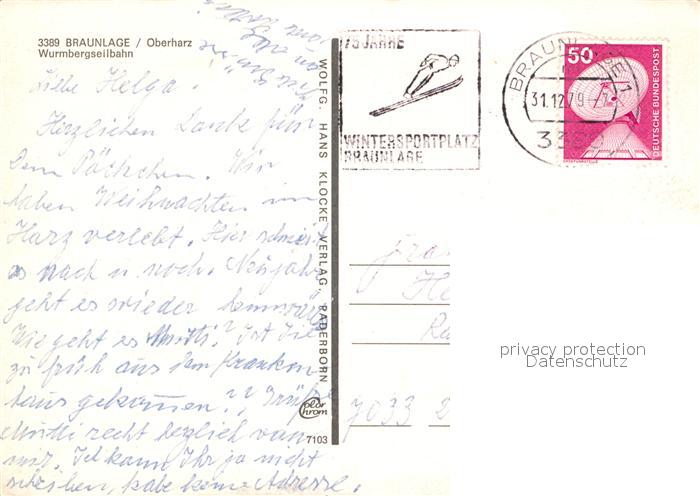 3389 BRAUNLAGE / Oberharz
Wurmbergseilbahn
Liebe Helga!
Herzlichen Dank für's
Dein Päckchen. Wir
haben Weihnachten im
Harz verlebt. Hier schneit
es nach u. noch. Neujahr
geht es wieder heimwärts
Wie geht es Mutti? Ist Sie
zu früh aus dem Kranken
haus gekommen? Grüße
Mutti recht herzlich von
mir. Ich kann Ihr ja nicht
schreiben, habe keine Adresse.
WOLFG. HANS KLOCKE VERLAG, PADERBORN
color chrom
7103
75 JAHRE
WINTERSPORTPLATZ
BRAUNLAGE
BRAUNLAGE 1
31.12.79
3389
50
DEUTSCHE BUNDESPOST
ERDEFUNKSTELLE
Frau
He
Ra
7033 2
privacy protection
Datenschutz